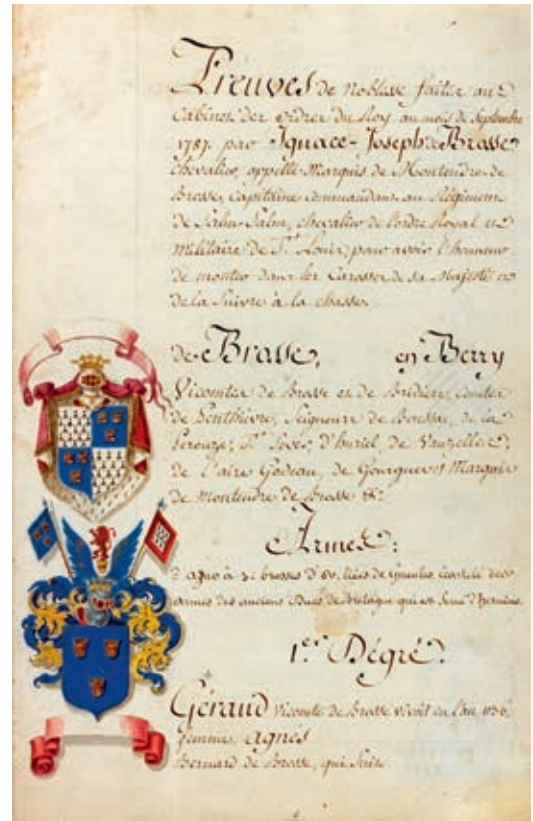 Preuves de noblesse faites au
Cabinet des ordres du Roy au mois de Septembre
1787. par Ignace-Joseph de Brosse
chevalier, appellé Marquis de Montendre de
Brosse, Capitaine commandant au Régiment
de Salm-Salm, chevalier de l'ordre Royal et
Militaire de St. Louis, pour avoir l'honneur
de monter dans les Carosses de sa Majesté et
de la suivre à la chasse.
de Brosse, en Berry
Vicomtes de Brosse et de Bridiers, Comtes
de Penthièvre, Seigneurs de Boussac, de la
Perouze, Ste Severe, d'huriel, de Vauzelles,
de l'aire Godeau, de Gourgues et Marquis
de Montendre de Brosse &c.
Armes:
D'azur à 3. brosses d'or, liées de gueules, écartelé des
armes des anciens Ducs de Bretagne qui est semé d'hermines.
1er Dégré.
Géraud Vicomte de Brosse vivoit en l'an 1136.
femme, Agnes
Bernard de Brosse, qui suit.